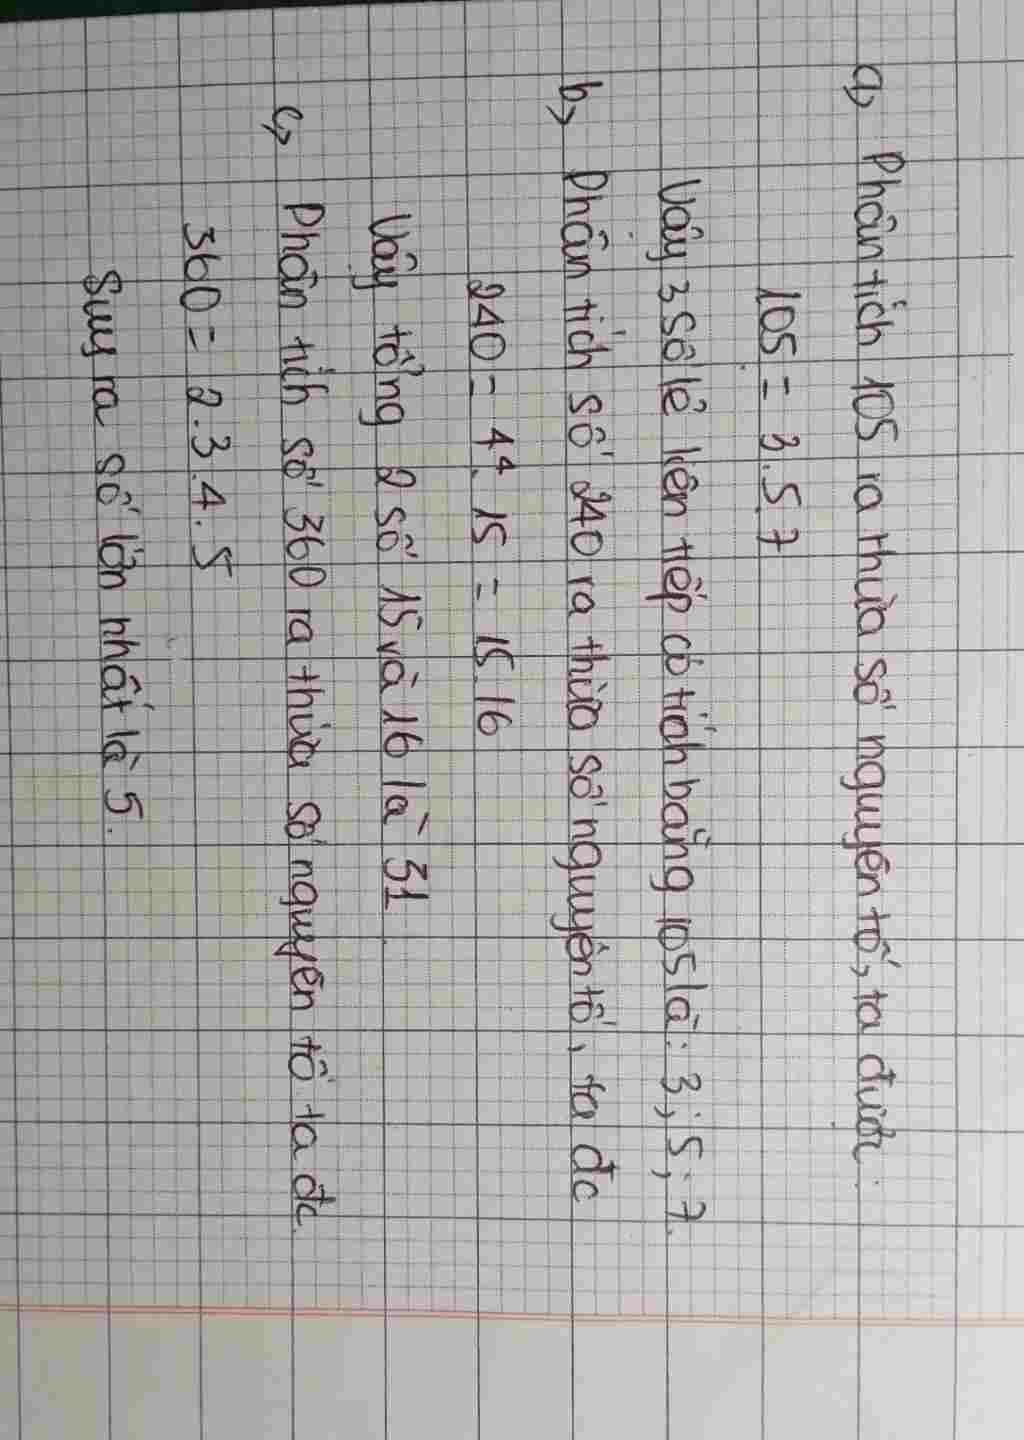 a, Phân tích 105 ra thừa số nguyên tố, ta được:
105 = 3.5.7
Vậy 3 số lẻ liên tiếp có tích bằng 105 là: 3; 5; 7.
b, Phân tích số 240 ra thừa số nguyên tố, ta đc
240 = 4⁴. 15 = 15.16
Vậy tổng 2 số 15 và 16 là 31
c, Phân tích số 360 ra thừa số nguyên tố ta đc.
360 = 2.3.4.5
Suy ra số lớn nhất là 5.